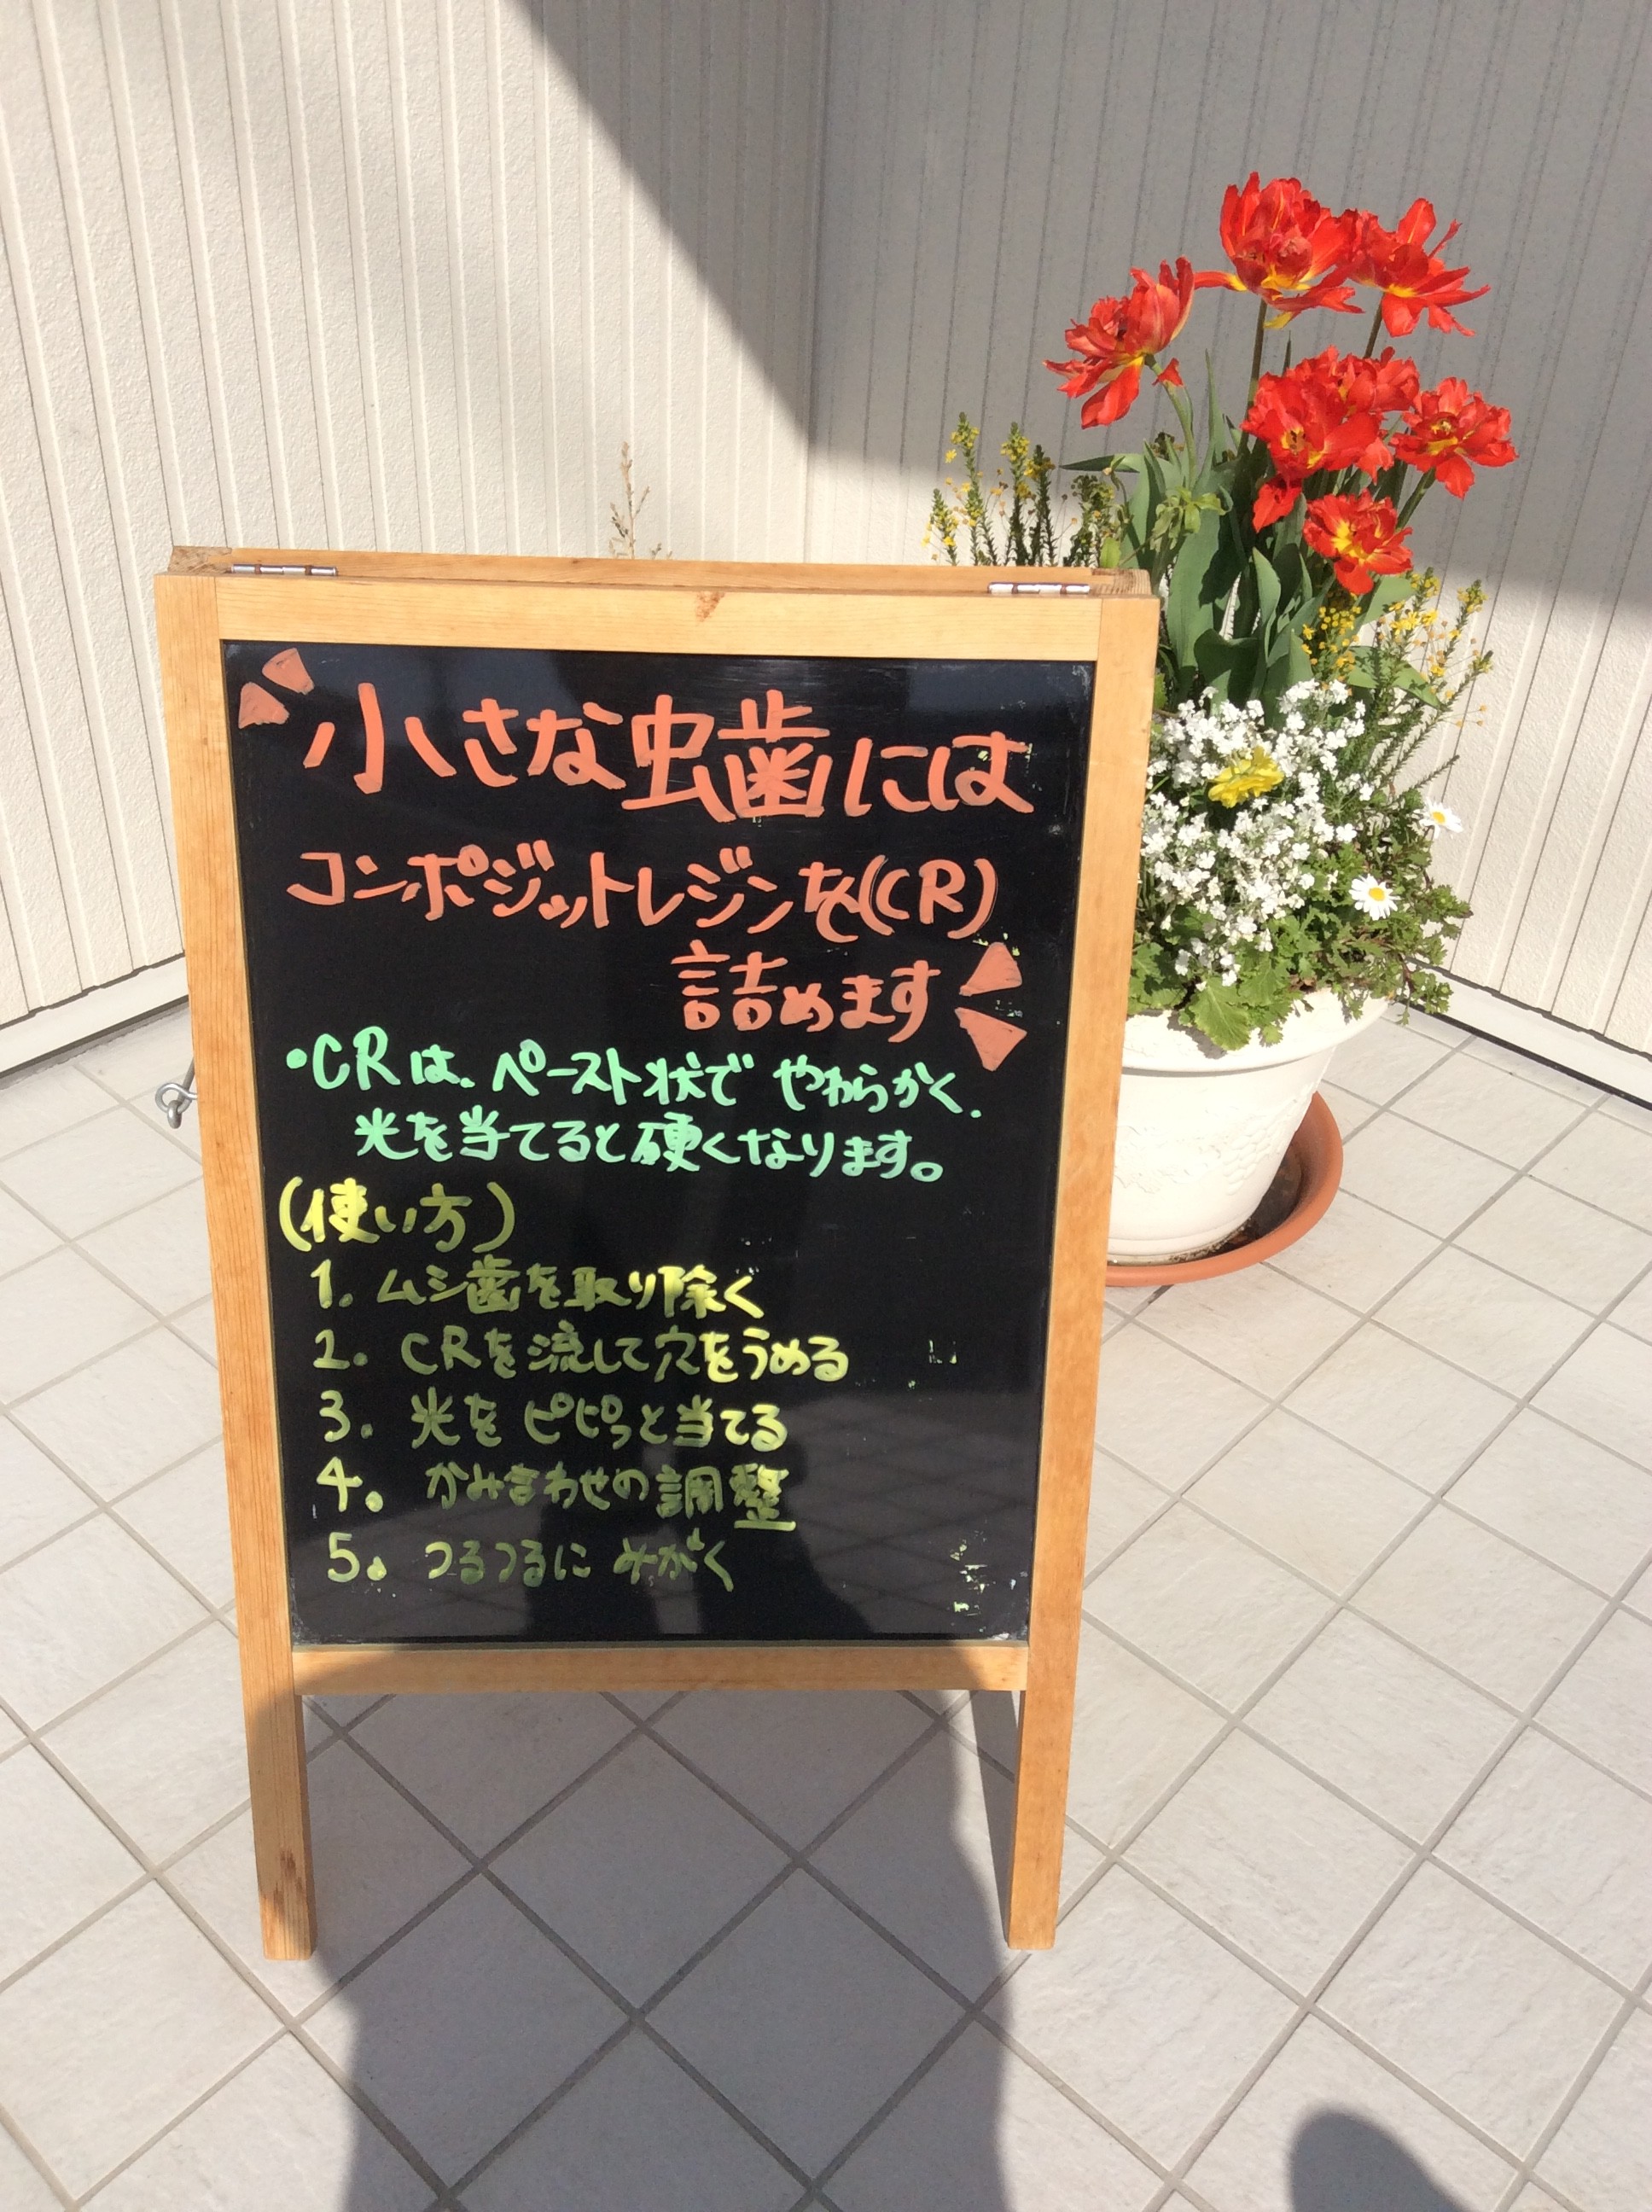 小さな虫歯には
コンポジットレジンを(CR)
詰めます
・CRは、ペースト状で やわらかく、
光を当てると硬くなります。
(使い方)
1. ムシ歯を取り除く
2. CRを流して穴をうめる
3. 光をピピっと当てる
4. かみ合わせの調整
5. つるつるに みがく